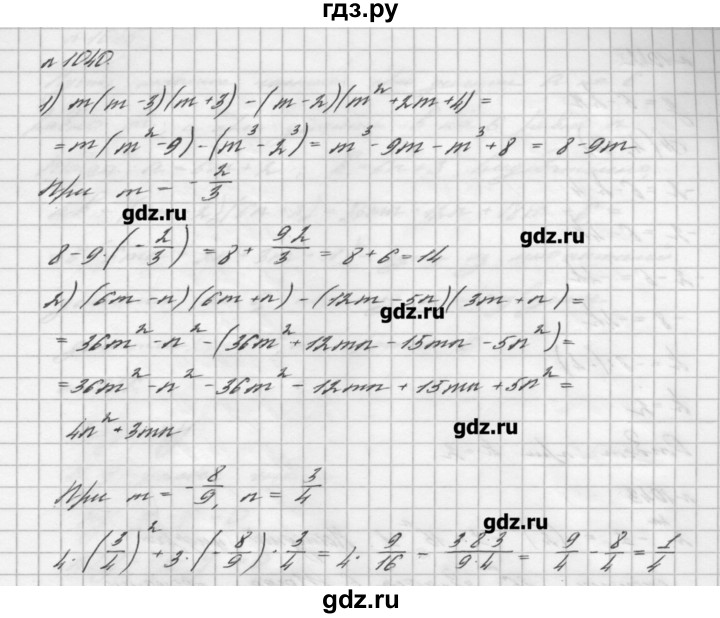 гдз.ру
n 1040.
1) m(m-3)(m+3) - (m-2)(m²+2m+4) =
= m(m²-9) - (m³-2³) = m³-9m-m³+8 = 8-9m
При m = -2/3
gdz.ru
gdz.ru
8-9·(-2/3) = 8+ 9 2/3 = 8+6=14
2) (6m-n)(6m+n) - (12m-5n)(3m+n) =
gdz.ru
= 36m²-n²-(36m²+12mn-15mn-5n²)=
=36m²-n²-36m²-12mn+15mn+5n²=
4n²+3mn
gdz.ru
При m = -8/9, n = 3/4
gdz.ru
4·(3/4)²+3·(-8/9)·3/4 = 4·9/16 - 3 8 3/9·4 = 9/4 - 8/4 = 1/4
gdz.ru